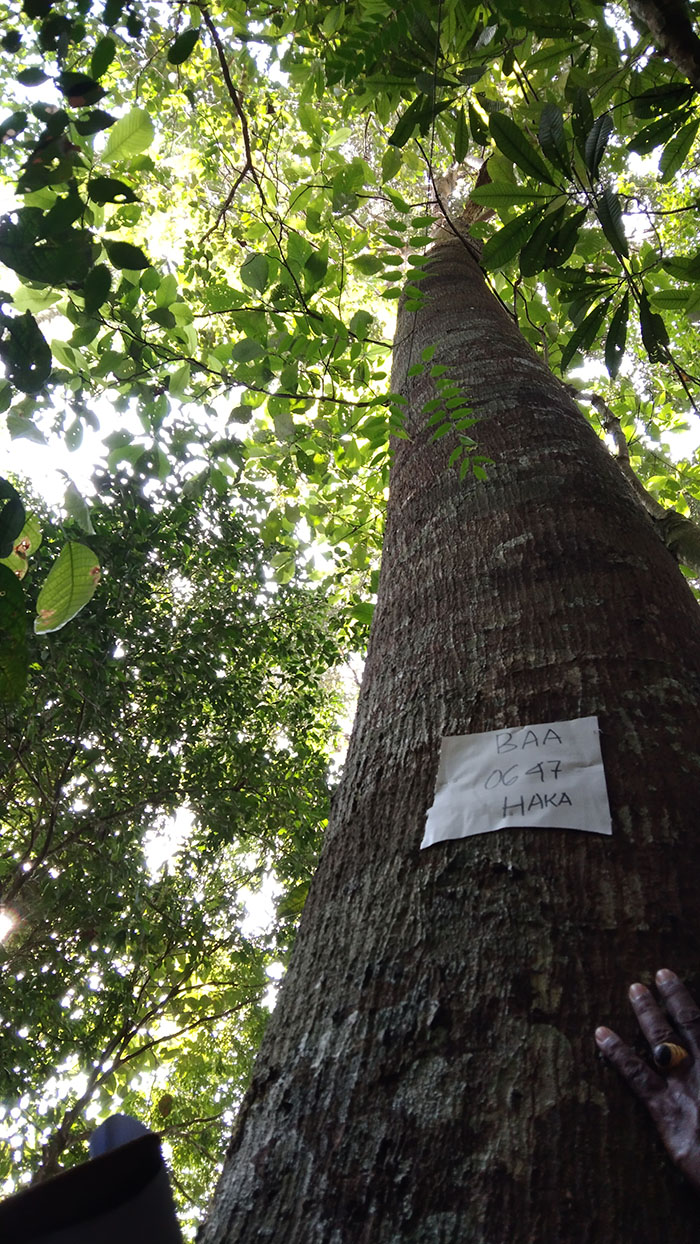 BAA
0647
HAKA